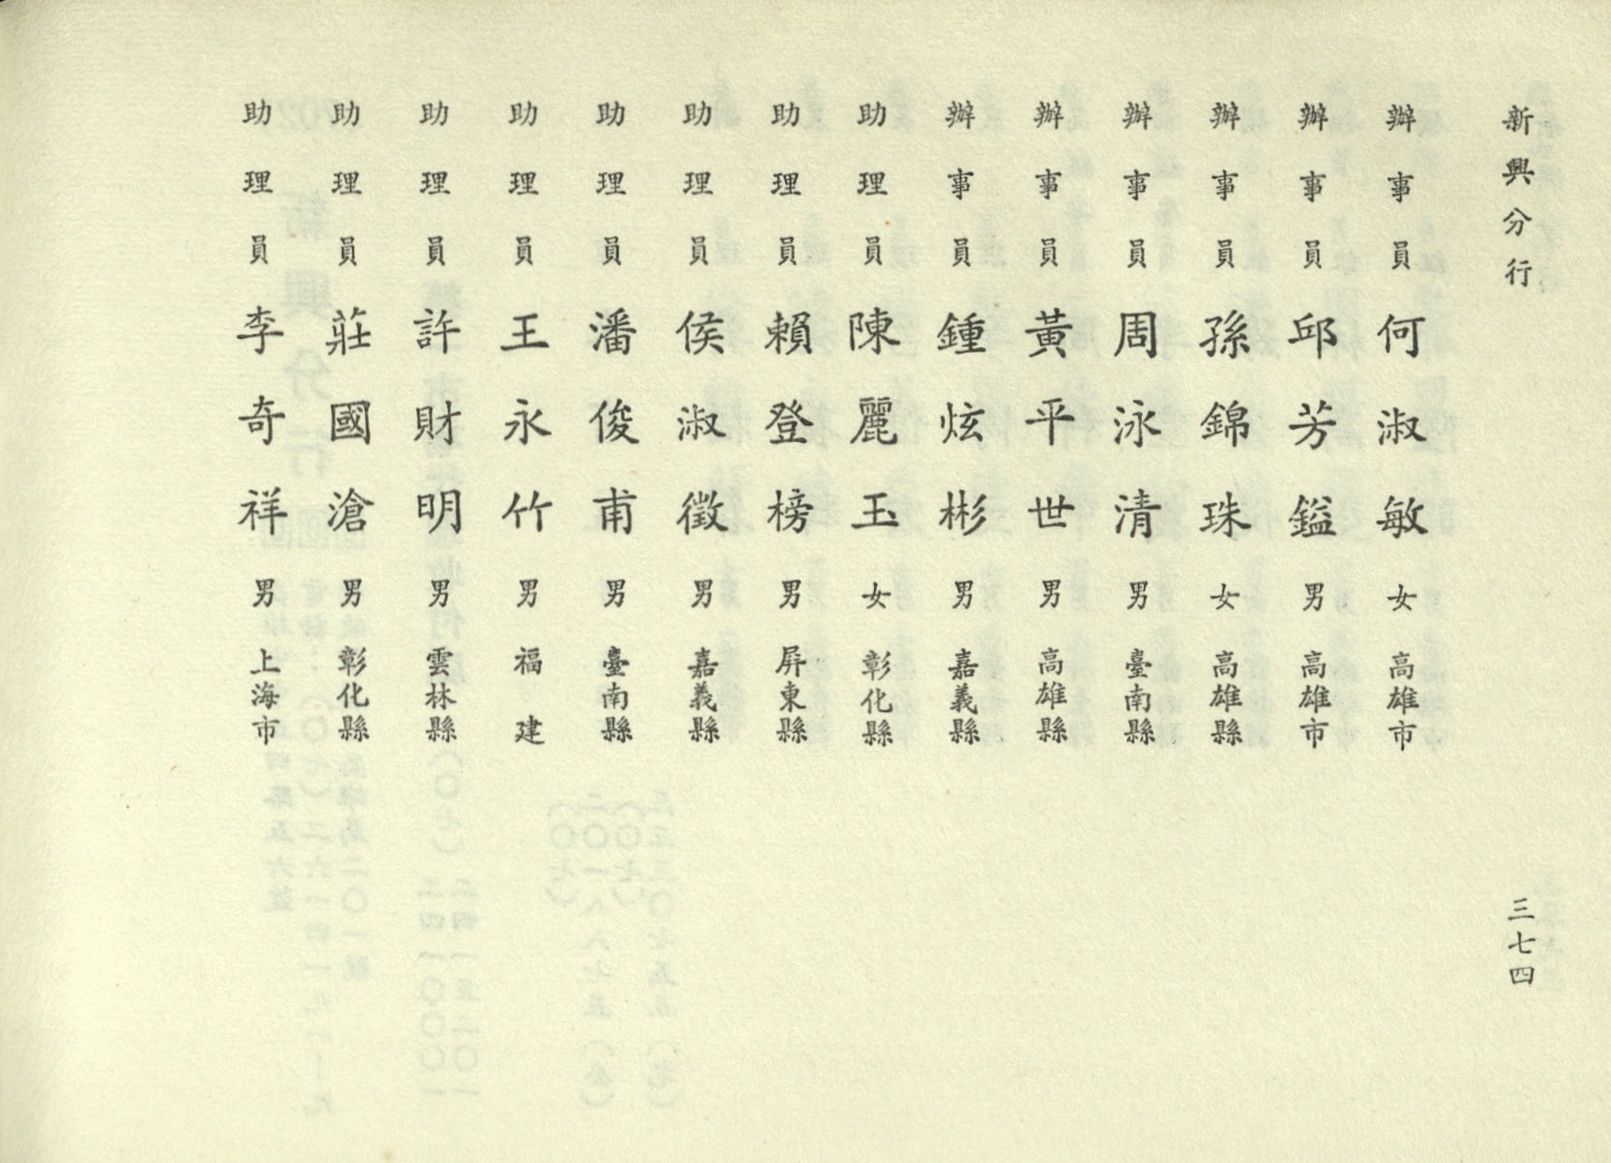 新興分行
三七四
辦事員何淑敏女高雄市
辦事員邱芳鎰男高雄市
辦事員孫錦珠女高雄縣
辦事員周泳清男臺南縣
辦事員黃平世男高雄縣
辦事員鍾炫彬男嘉義縣
助理員陳麗玉女彰化縣
助理員賴登榜男屏東縣
助理員侯淑徵男嘉義縣
助理員潘俊甫男臺南縣
助理員王永竹男福建
助理員許財明男雲林縣
助理員莊國滄男彰化縣
助理員李奇祥男上海市